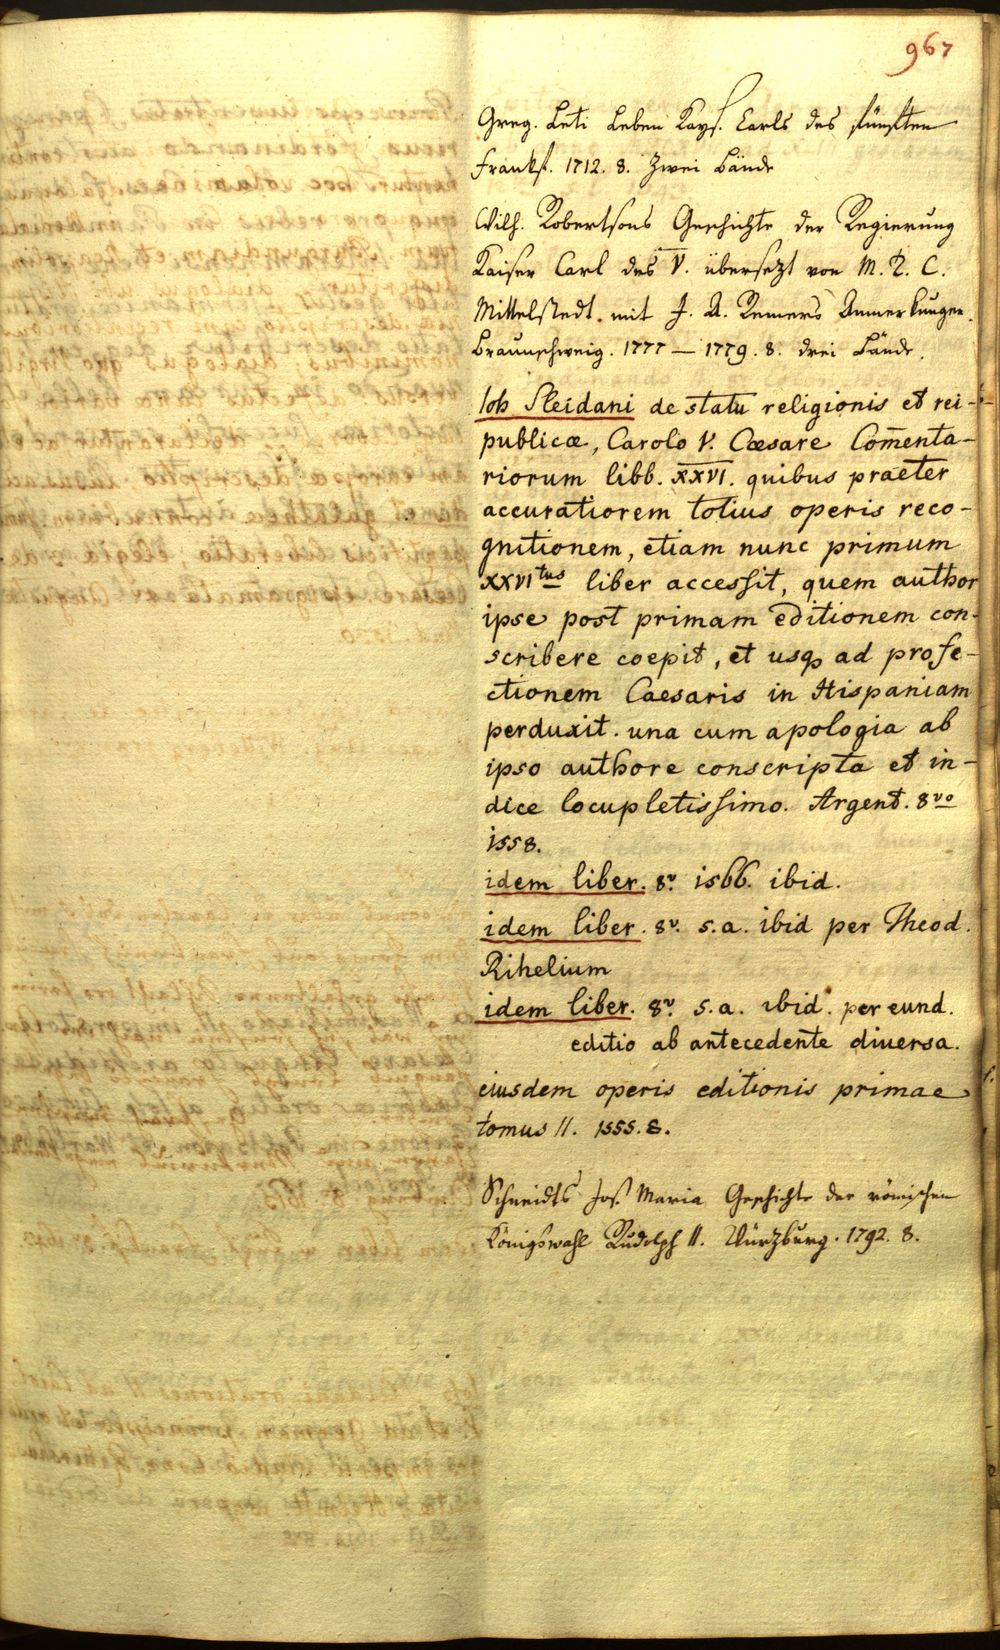 967
Greg. Leti Leben Kays. Carls des fünften
Frankf. 1712. 8. Zwei Bände
Wilh. Robertsons Geschichte der Regierung
Kaiser Carl des V. übersetzt von M. T. C.
Mittelstedt. mit J. A. Remers Anmerkungen.
Braunschweig. 1777 — 1779. 8. drei Bände.
Ioh Sleidani de statu religionis et rei-
publicæ, Carolo V. Cæsare Com̄enta-
riorum libb. XXVI. quibus praeter
accuratiorem totius operis reco-
gnitionem, etiam nunc primum
XXVI tus liber accessit, quem author
ipse post primam editionem con-
scribere coepit, et usq ad profe-
ctionem Caesaris in Hispaniam
perduxit. una cum apologia ab
ipso authore conscripta et in-
dice locupletissimo. Argent. 8vo
1558.
idem liber. 8v. 1566. ibid.
idem liber. 8v. s.a. ibid per Theod.
Rihelium
idem liber. 8v s.a. ibid. per eund.
editio ab antecedente diversa.
eiusdem operis editionis primae
tomus II. 1555. 8.
Schneidts Jos. Maria Geschichte der römischen
Königswahl Rudolph II. Würzburg. 1792. 8.